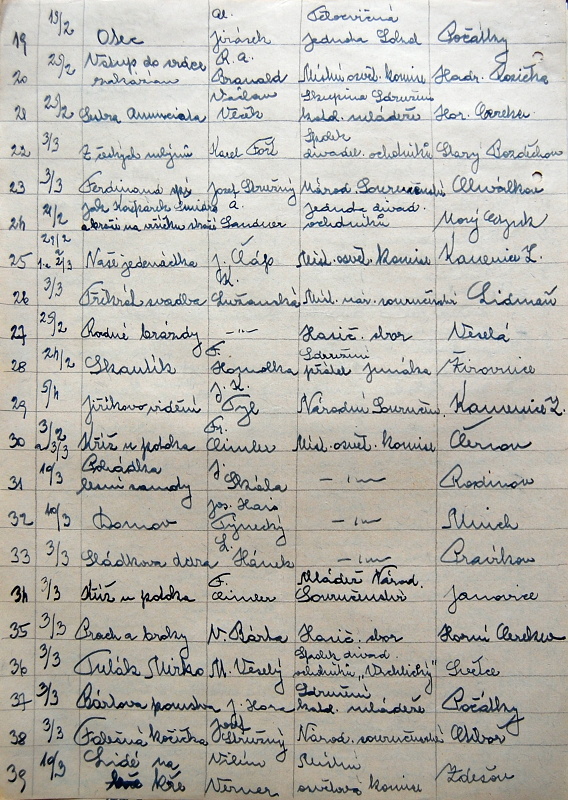 19 19/2 Otec Al. Jirásek Tělocvičná jednota Sokol Počátky
20 25/2 Vstup do srdce zakázán R. A. Branald Místní osvět. komise Hadr. Rosička
21 25/2 Sestra Anunciata Václav Vlček Skupina Sdružení kat. mládeže Hor. Cerekev
22 3/3 Z českých mlýnů Karel Fořt Spolek divadel. ochotníků Starý Bozděchov
23 3/3 Ferdinand spí Josef Stručný Národ. Souručenství
24 24/2 Jak Kašpárek A. Sandner Jednota divad. ochotníků
25 Naše jedenáctka J. Čáp Míst. osvět. komise Kamenice L.
26 3/3 Třikrát svatba K. Lužanská Míst. nár. souručenství Lidmaň
27 25/2 Rodné brázdy -"- Hasič. sbor Veselá
28 24/2 Skautík F. Sdružení přátel junáka Žirovnice
29 5/4 Jiříkovo vidění J. K. Tyl Národní Souručen. Kamenice L.
30 3/2 a 3/3 Kříž u potoka Fr. Míst. osvět. komise Černov
31 10/3 Pohádka lesní samoty J. Skála -"- Rodinov
32 10/3 Domov Jos. Haïs Týnecký -"- Mnich
33 3/3 Sládkova dcera L. Hánek -"- Pravíkov
34 3/3 Kříž u potoka F. Mládež Národ. Souručenství Janovice
35 3/3 Prach a broky V. Bárta Hasič. sbor Horní Cerekev
36 3/3 Tulák Mirko M. Veselý Spolek divad. ochotníků „Vrchlický“ Světce
37 3/3 Bártova pomsta J. Hora Sdružení kat. mládeže Počátky
38 3/3 Falešná kočička Josef Stručný Národ. souručenství
39 10/3 Lidé na kře Vilém Werner Místní osvětová komise Zdešov